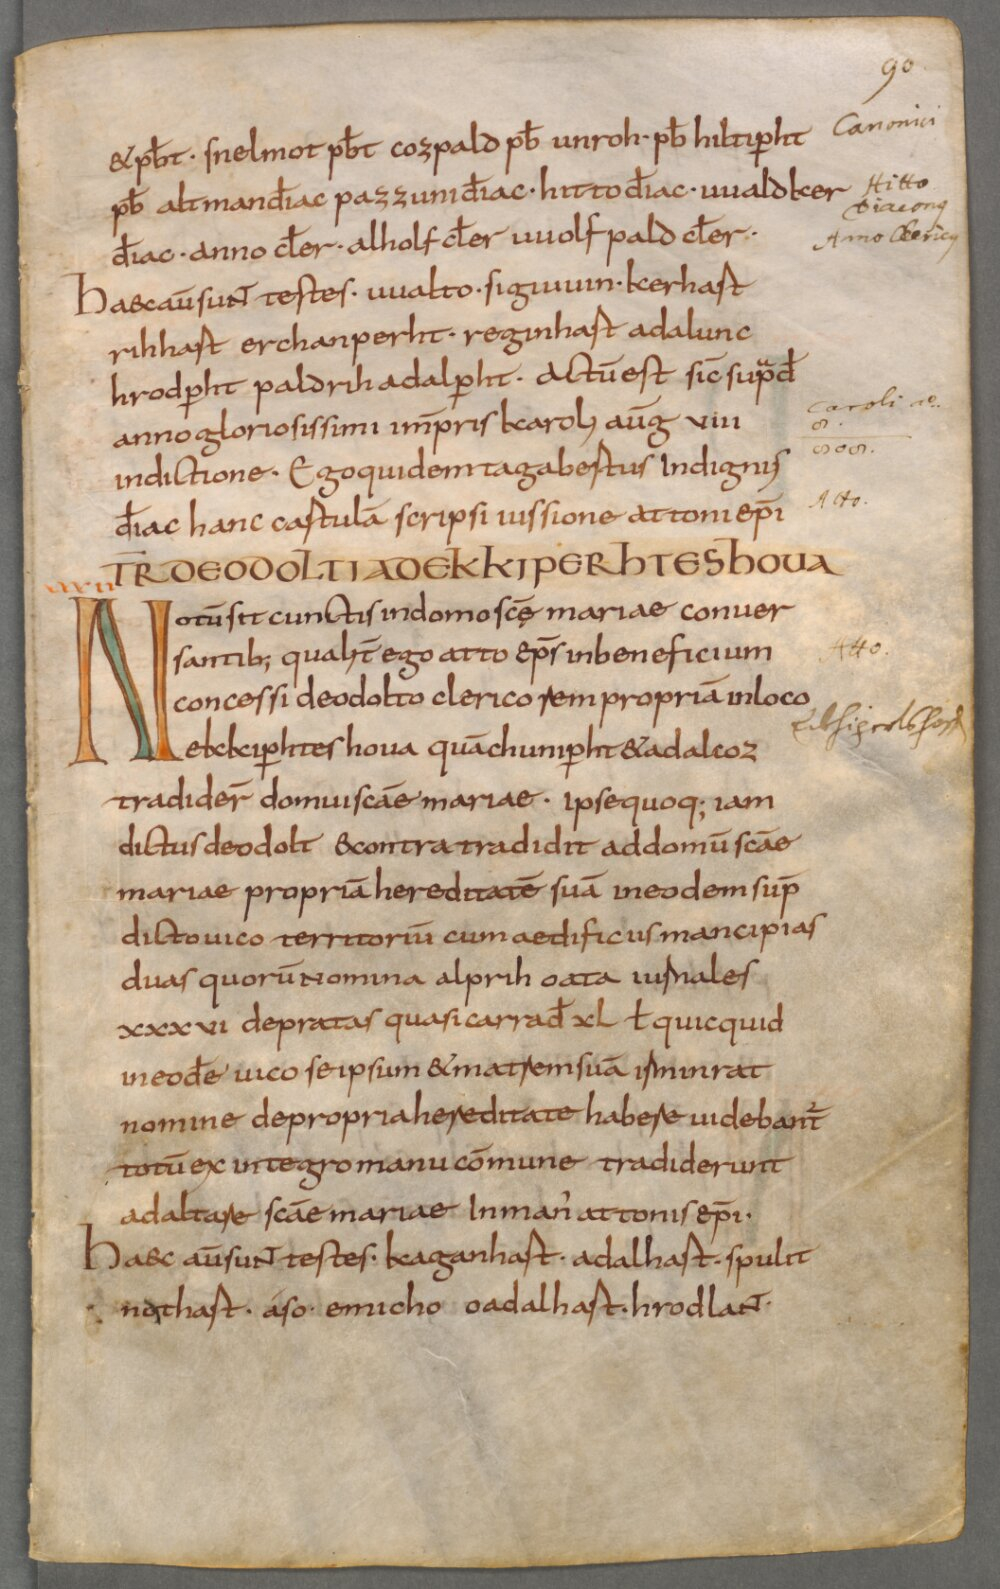 90
& p̄bt · snelmot p̄bt cozpald p̄b unroh · p̄b hiltip̱ht
Canonici
p̄b altman d̄iac pazzuni d̄iac · hitto d̄iac · uualdker
Hitto
Diaconꝯ
d̄iac · anno cl̄er · alholf cl̄er uuolfpald cl̄er ·
Anno Clericꝯ
Haec aūsuNT̄ testes · uualto · siguuin · kerhast
rihhast erchanperht · reginhast adalunc
hrodp̱ht paldrih adalp̱ht · actū est sic̄ sup̱ad̄
anno gloriosissimi im̄pris karoli aūg viii
Caroli ao.
8.
808.
indictione · Ego quidem tagabeftus Indignus
d̄iac hanc cartulā scripsi iussione attoni ep̄i
Atto.
TR̄ DEODOLTI AD EKKIPERHTESHOUA
Notū sit cunctis in domo scē mariae conuer
santib; qualit̄ ego atto ep̄s in beneficium
Atto.
concessi deodolto clerico rem propriā in loco
ekkip̱hteshoua quā chunip̱ht & adalcoz
tradider̄ domui scāe mariae · ipse quoq; iam
dictus deodolt & contra tradidit ad domū scāe
mariae propriā hereditatē suā in eodem sup̄
dicto uico territoriū cum aedificiis mancipias
duas quorū Nomina alprih oata iurnales
xxxvi de pratas quasi carrad̄ xL ł quicquid
in eod̄e uico se ipsum & matrem suā irminrat
nomine de propria hereditate habere uidebant̄
totū ex integro manu cōmune tradiderunt
ad altare scāe mariae In man' attonis ep̄i ·
Haec aūsuNT̄ testes · kaganhast · adalhast · spulit
nothast · aso · emicho oadalhast · hrodlaNT̄ ·